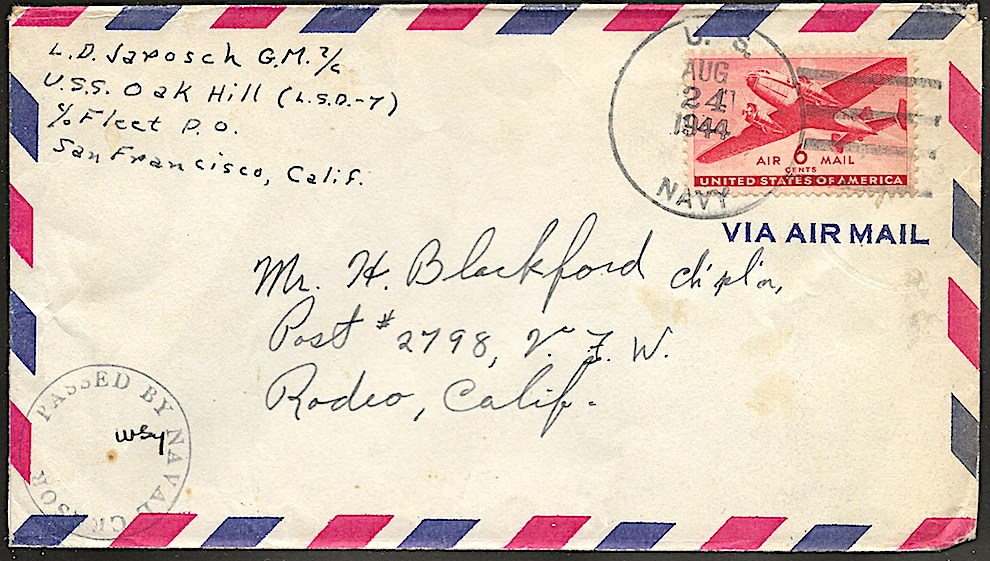 L.D. Jarosch G.M. 2/c
U.S.S. Oak Hill (L.S.D.-7)
c/o Fleet P.O.
San Francisco, Calif.
U. S.
AUG
24
1944
NAVY
AIR 6 MAIL
CENTS
UNITED STATES OF AMERICA
VIA AIR MAIL
Mr. H. Blackford ch'pl'n,
Post #2798, V. F. W.
Rodeo, Calif.
PASSED BY NAVAL CENSOR